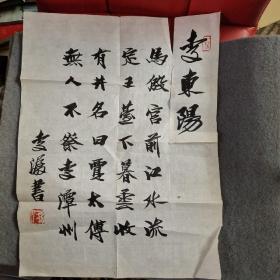 李東陽
馬殷宮前江水流
定王臺下暮雲收
有井名曰賈太傅
無人不祭李潭州
李瀛書